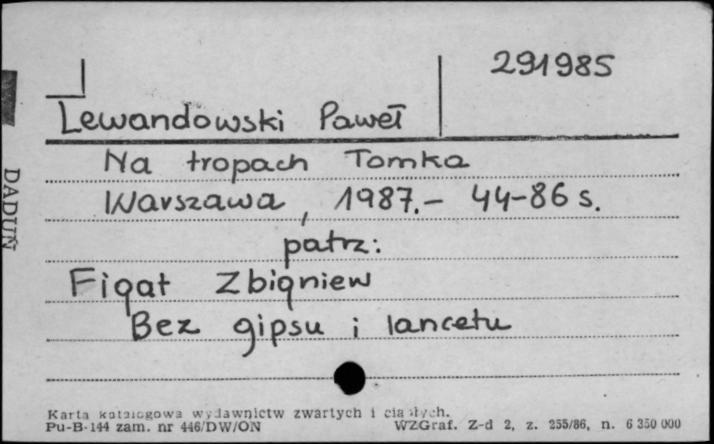 291985
Lewandowski Paweł
Na tropach Tomka
Warszawa, 1987.- 44-86 s.
patrz:
Figat Zbigniew
Bez gipsu i lancetu
DADUŃ
Karta katalogowa wydawnictw zwartych i ciągłych.
Pu-B-144 zam. nr 446/DW/ON WZGraf. Z-d 2, z. 255/86, n. 6 350 000